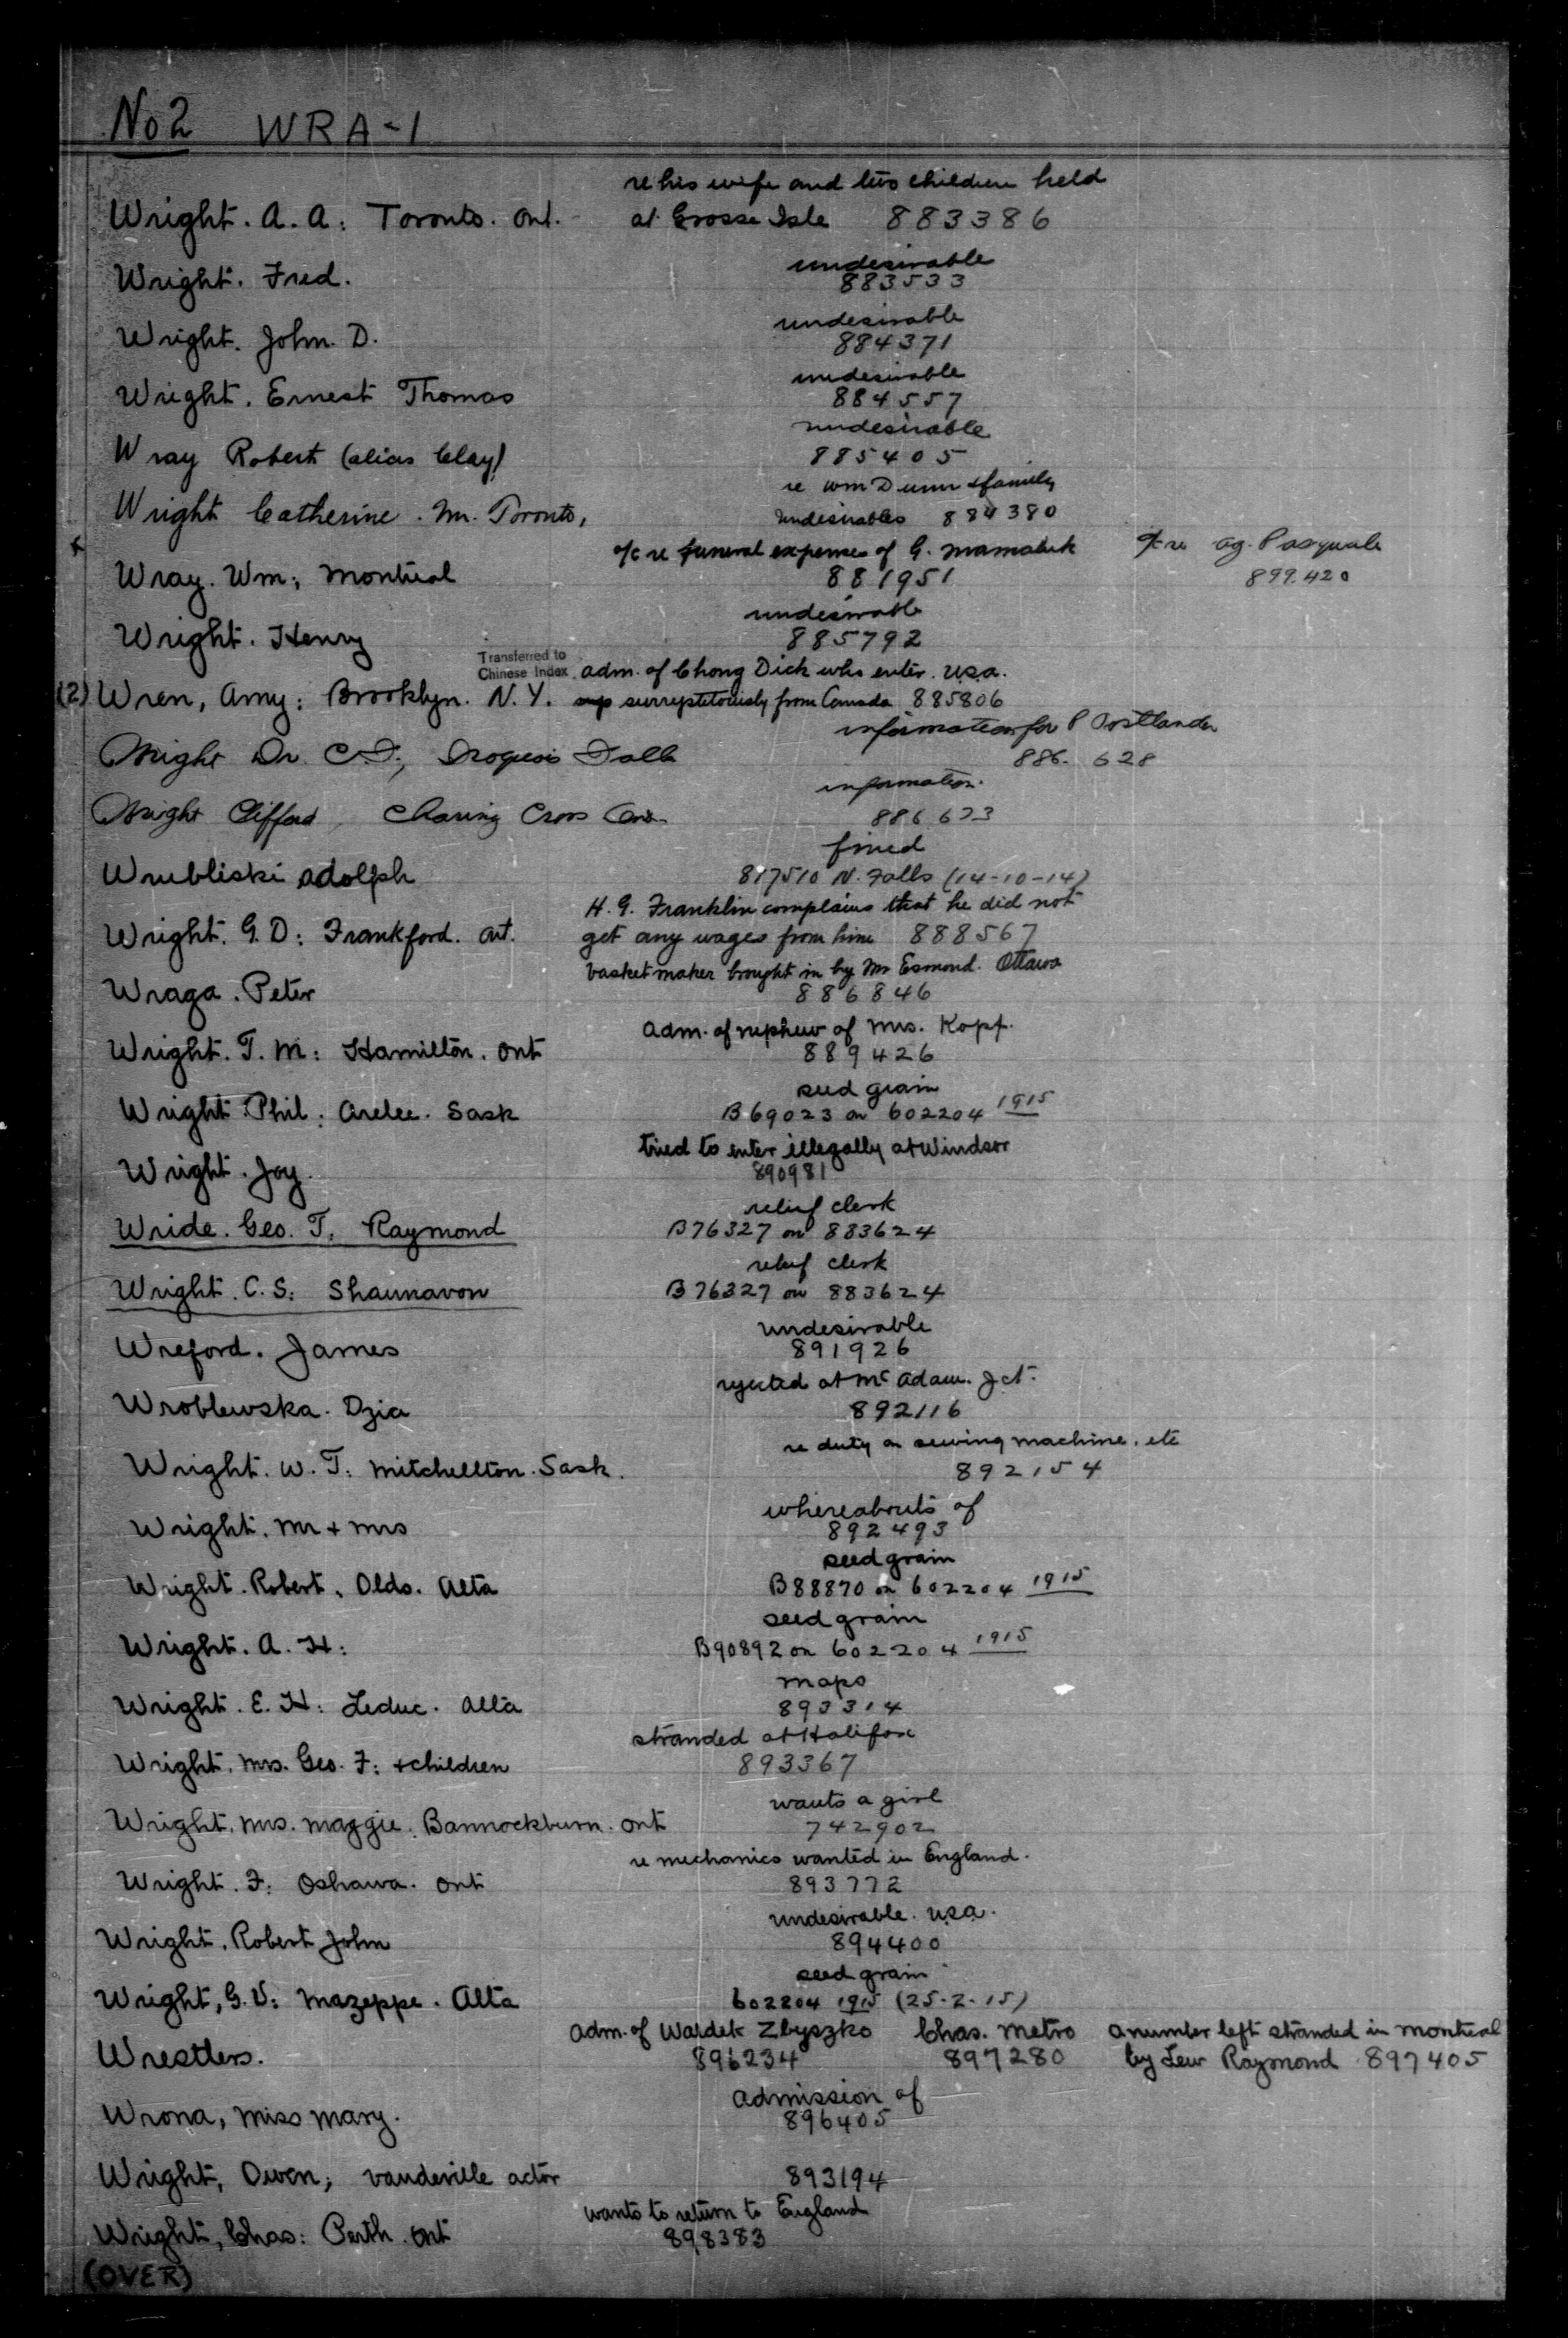 No 2 WRA-1
re his wife and two children held
Wright. A. A: Toronto. Ont. at Grosse Isle 883386
undesirable
Wright. Fred. 883533
undesirable
Wright. John. D. 884371
undesirable
Wright. Ernest Thomas 884557
undesirable
Wray Robert (alias Clay) 885405
re Wm Dunn & family
Wright Catherine. Toronto, undesirables 884380
a/c re funeral expenses of G. Mamaluk a/c re ag. Pasquale
Wray. Wm; Montreal 881951 899.420
undesirable
Wright. Henry 885792
Transferred to
Chinese Index adm. of Chong Dick who enter. U.S.A.
(2) Wren, Amy: Brooklyn. N.Y. surreptitously from Canada 885806
information for P Ostlander
Wright Dr C.D., Iroquois Falls 886.628
information
Wright Clifford, Charing Cross Ont. 886623
fined
Wrubliski Adolph 817510 N. Falls (14-10-14)
H. G. Franklin complains that he did not
Wright. G. D: Frankford. Ont. get any wages from him 888567
basket maker brought in by Mr Esmond. Ottawa
Wraga. Peter 886846
adm. of nephew of Mrs. Kopf.
Wright. T. M: Hamilton. Ont 889426
seed grain
Wright. Phil: Arelee. Sask B69023 on 602204 1915
tried to enter illegally at Windsor
Wright. Joy. 890981
relief clerk
Wride. Geo. T. Raymond B76327 on 883624
relief clerk
Wright. C. S: Shaunavon B76327 on 883624
undesirable
Wreford. James 891926
rejected at McAdam. Jct.
Wroblewska. Dzia 892116
re duty on sewing machine. etc
Wright. W. T: Mitchellton. Sask. 892154
whereabouts of
Wright. Mr + Mrs 892493
seed grain
Wright. Robert. Olds. Alta B88870 on 602204 1915
seed grain
Wright. A. H: B90892 on 602204 1915
maps
Wright. E. H: Leduc. Alta 893314
stranded at Halifax
Wright. Mrs. Geo. F: + children 893367
wants a girl
Wright. Mrs. Maggie. Bannockburn. Ont 742902
re mechanics wanted in England.
Wright. F: Oshawa. Ont 893772
undesirable. U.S.A.
Wright. Robert John 894400
seed grain
Wright, G. V: Mazeppe. Alta 602204 1915 (25-2-15)
adm. of Waldek Zbyszko Chas. Metro a number left stranded in Montreal
Wrestlers. 896234 897280 by Lew Raymond 897405
admission of
Wrona, Miss Mary. 896405
Wright, Owen; vaudeville actor 893194
wants to return to England
Wright, Chas: Perth. Ont 898383
(OVER)